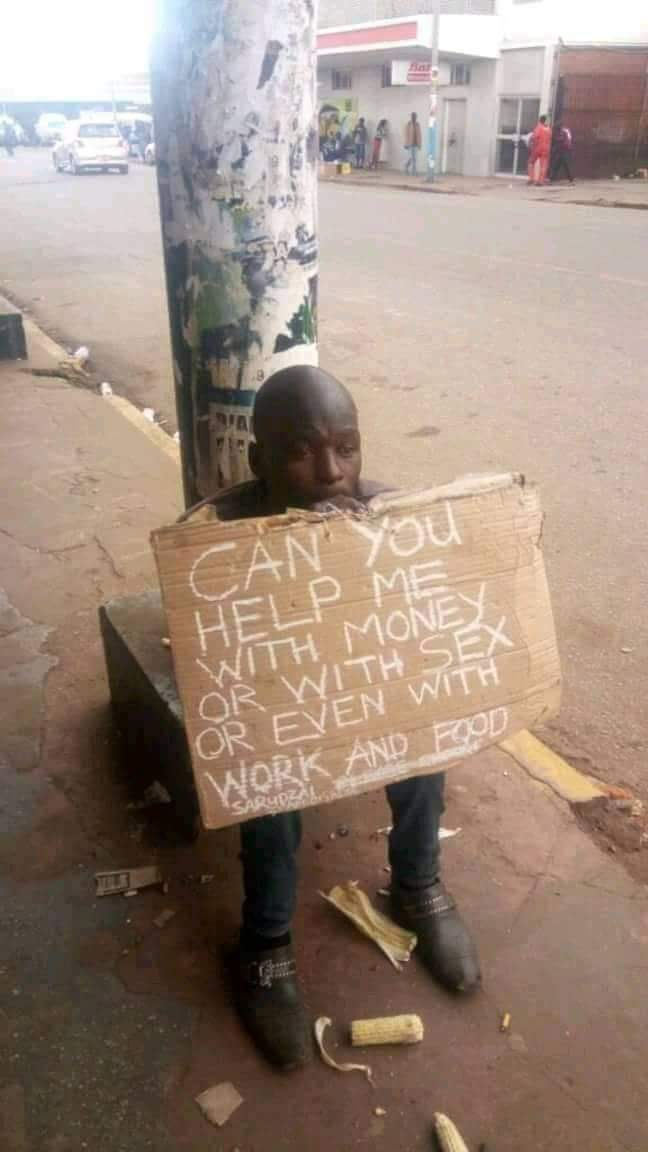 CAN YOU
HELP ME
WITH MONEY
OR WITH SEX
OR EVEN WITH
WORK AND FOOD
SARUDZAI